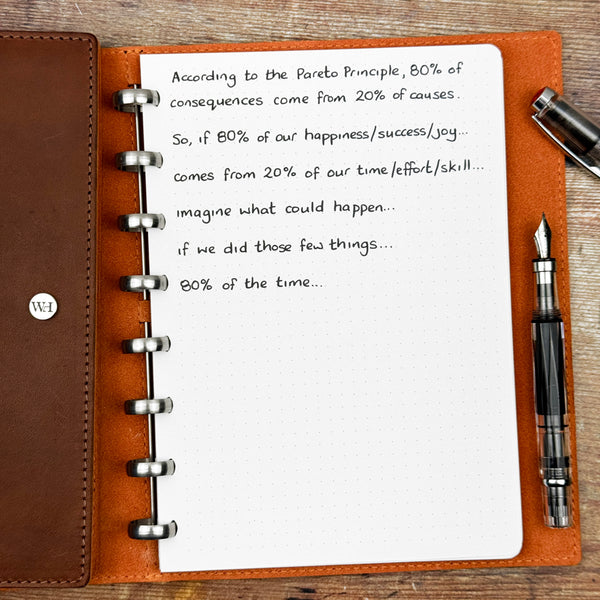 According to the Pareto Principle, 80% of
consequences come from 20% of causes.
So, if 80% of our happiness/success/joy...
comes from 20% of our time/effort/skill...
imagine what could happen...
if we did those few things...
80% of the time...
WH